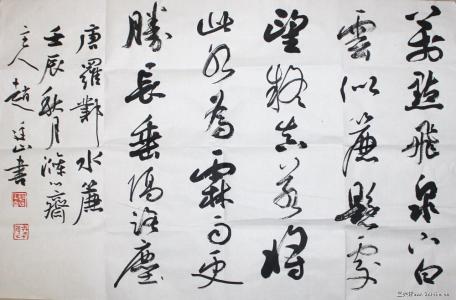 萬點飛泉下白
雲似簾懸處
望疑真若將
此水為霖雨更
勝長垂隔路塵
唐羅鄴水簾
壬辰秋月滌心齋
主人趙山書